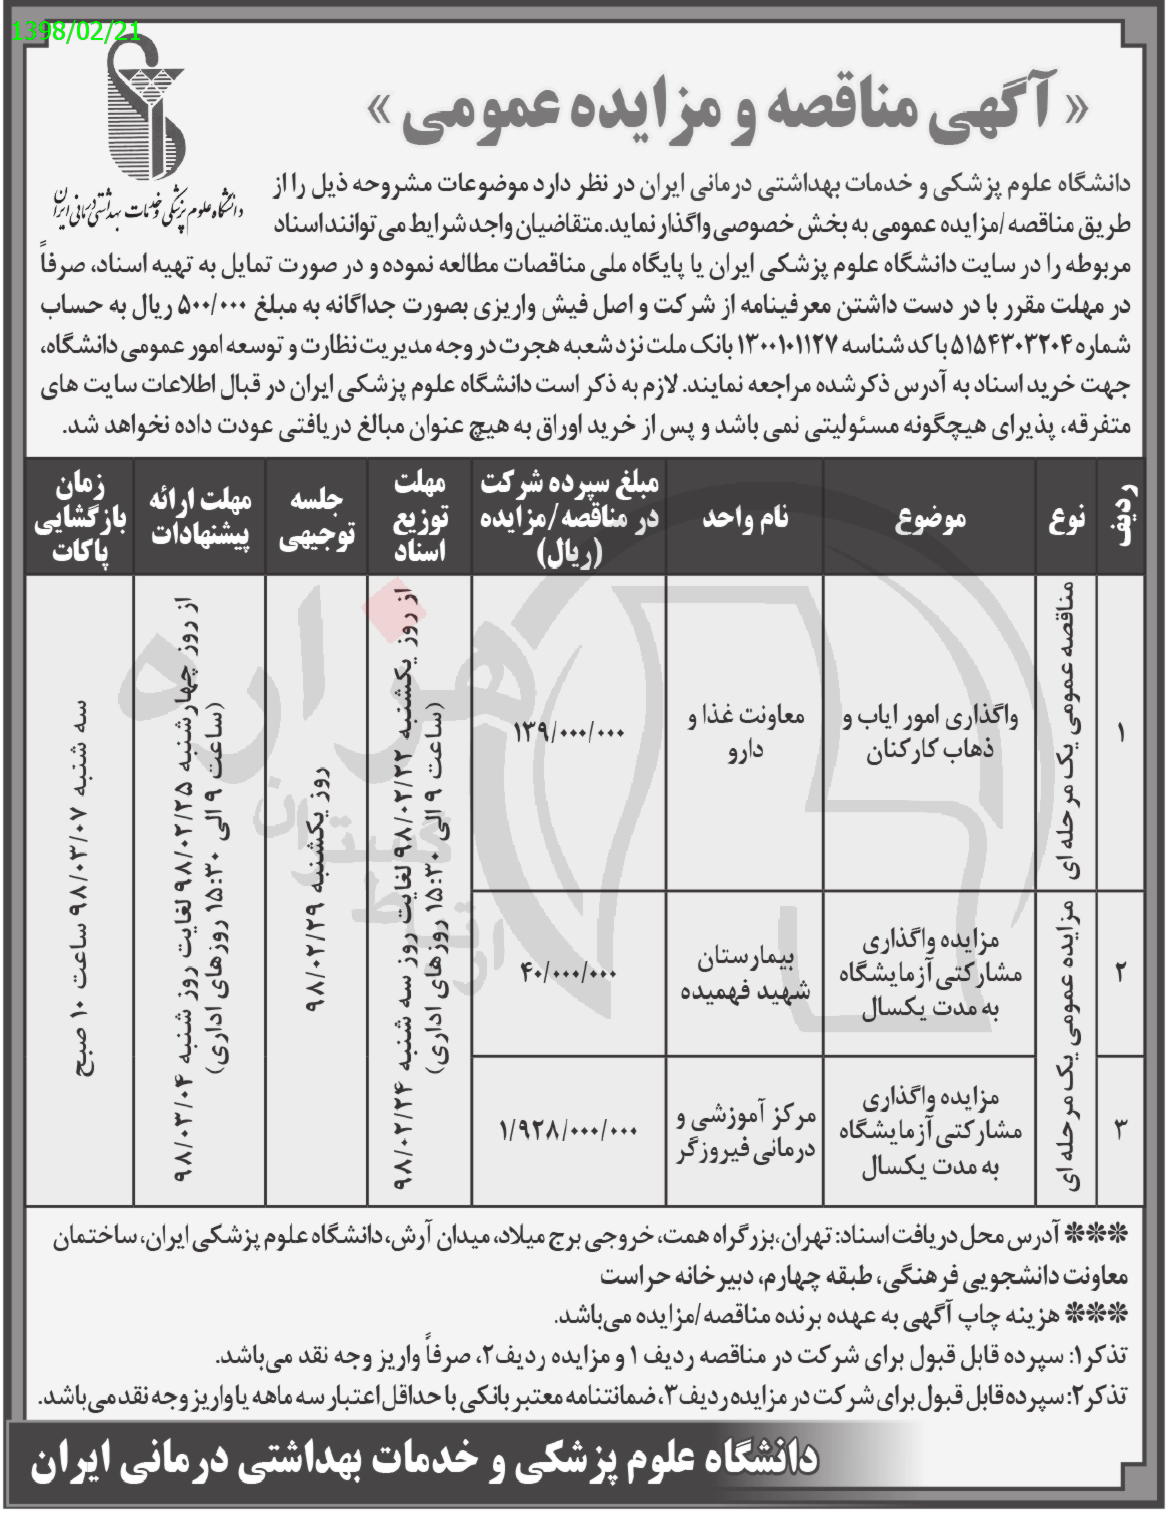 1398/02/21
« آگهی مناقصه و مزایده عمومی »
دانشگاه علوم پزشکی و خدمات بهداشتی درمانی ایران
دانشگاه علوم پزشکی و خدمات بهداشتی درمانی ایران در نظر دارد موضوعات مشروحه ذیل را از
طریق مناقصه /مزایده عمومی به بخش خصوصی واگذار نماید.متقاضیان واجد شرایط می توانند اسناد
مربوطه را در سایت دانشگاه علوم پزشکی ایران یا پایگاه ملی مناقصات مطالعه نموده و در صورت تمایل به تهیه اسناد، صرفاً
در مهلت مقرر با در دست داشتن معرفینامه از شرکت و اصل فیش واریزی بصورت جداگانه به مبلغ ۵۰۰/۰۰۰ ریال به حساب
شماره ۵۱۵۴۳۰۳۲۰۴ با کد شناسه ۱۳۰۰۱۰۱۱۲۷ بانک ملت نزد شعبه هجرت در وجه مدیریت نظارت و توسعه امور عمومی دانشگاه،
جهت خرید اسناد به آدرس ذکرشده مراجعه نمایند. لازم به ذکر است دانشگاه علوم پزشکی ایران در قبال اطلاعات سایت های
متفرقه، پذیرای هیچگونه مسئولیتی نمی باشد و پس از خرید اوراق به هیچ عنوان مبالغ دریافتی عودت داده نخواهد شد.
ردیف
نوع
موضوع
نام واحد
مبلغ سپرده شرکت
در مناقصه/مزایده
(ریال)
مهلت
توزیع
اسناد
جلسه
توجیهی
مهلت ارائه
پیشنهادات
زمان
بازگشایی
پاکات
۱
مناقصه عمومی یک مرحله ای
واگذاری امور ایاب و
ذهاب کارکنان
معاونت غذا و
دارو
۱۳۹/۰۰۰/۰۰۰
از روز یکشنبه ۹۸/۰۲/۲۲ لغایت روز سه شنبه ۹۸/۰۲/۲۴
(ساعت ۹ الی ۱۵:۳۰ روزهای اداری)
روز یکشنبه ۹۸/۰۲/۲۹
از روز چهارشنبه ۹۸/۰۲/۲۵ لغایت روز شنبه ۹۸/۰۳/۰۴
(ساعت ۹ الی ۱۵:۳۰ روزهای اداری)
سه شنبه ۹۸/۰۳/۰۷ ساعت ۱۰ صبح
۲
مزایده عمومی یک مرحله ای
مزایده واگذاری
مشارکتی آزمایشگاه
به مدت یکسال
بیمارستان
شهید فهمیده
۴۰/۰۰۰/۰۰۰
۳
مزایده واگذاری
مشارکتی آزمایشگاه
به مدت یکسال
مرکز آموزشی و
درمانی فیروزگر
۱/۹۲۸/۰۰۰/۰۰۰
هزاره
گستران
اقتباط
*** آدرس محل دریافت اسناد: تهران،بزرگراه همت، خروجی برج میلاد، میدان آرش، دانشگاه علوم پزشکی ایران، ساختمان
معاونت دانشجویی فرهنگی، طبقه چهارم، دبیرخانه حراست
*** هزینه چاپ آگهی به عهده برنده مناقصه/مزایده می‌باشد.
تذکر۱: سپرده قابل قبول برای شرکت در مناقصه ردیف ۱ و مزایده ردیف۲، صرفاً واریز وجه نقد می‌باشد.
تذکر۲: سپرده قابل قبول برای شرکت در مزایده ردیف ۳، ضمانتنامه معتبر بانکی با حداقل اعتبار سه ماهه یا واریز وجه نقد می‌باشد.
دانشگاه علوم پزشکی و خدمات بهداشتی درمانی ایران